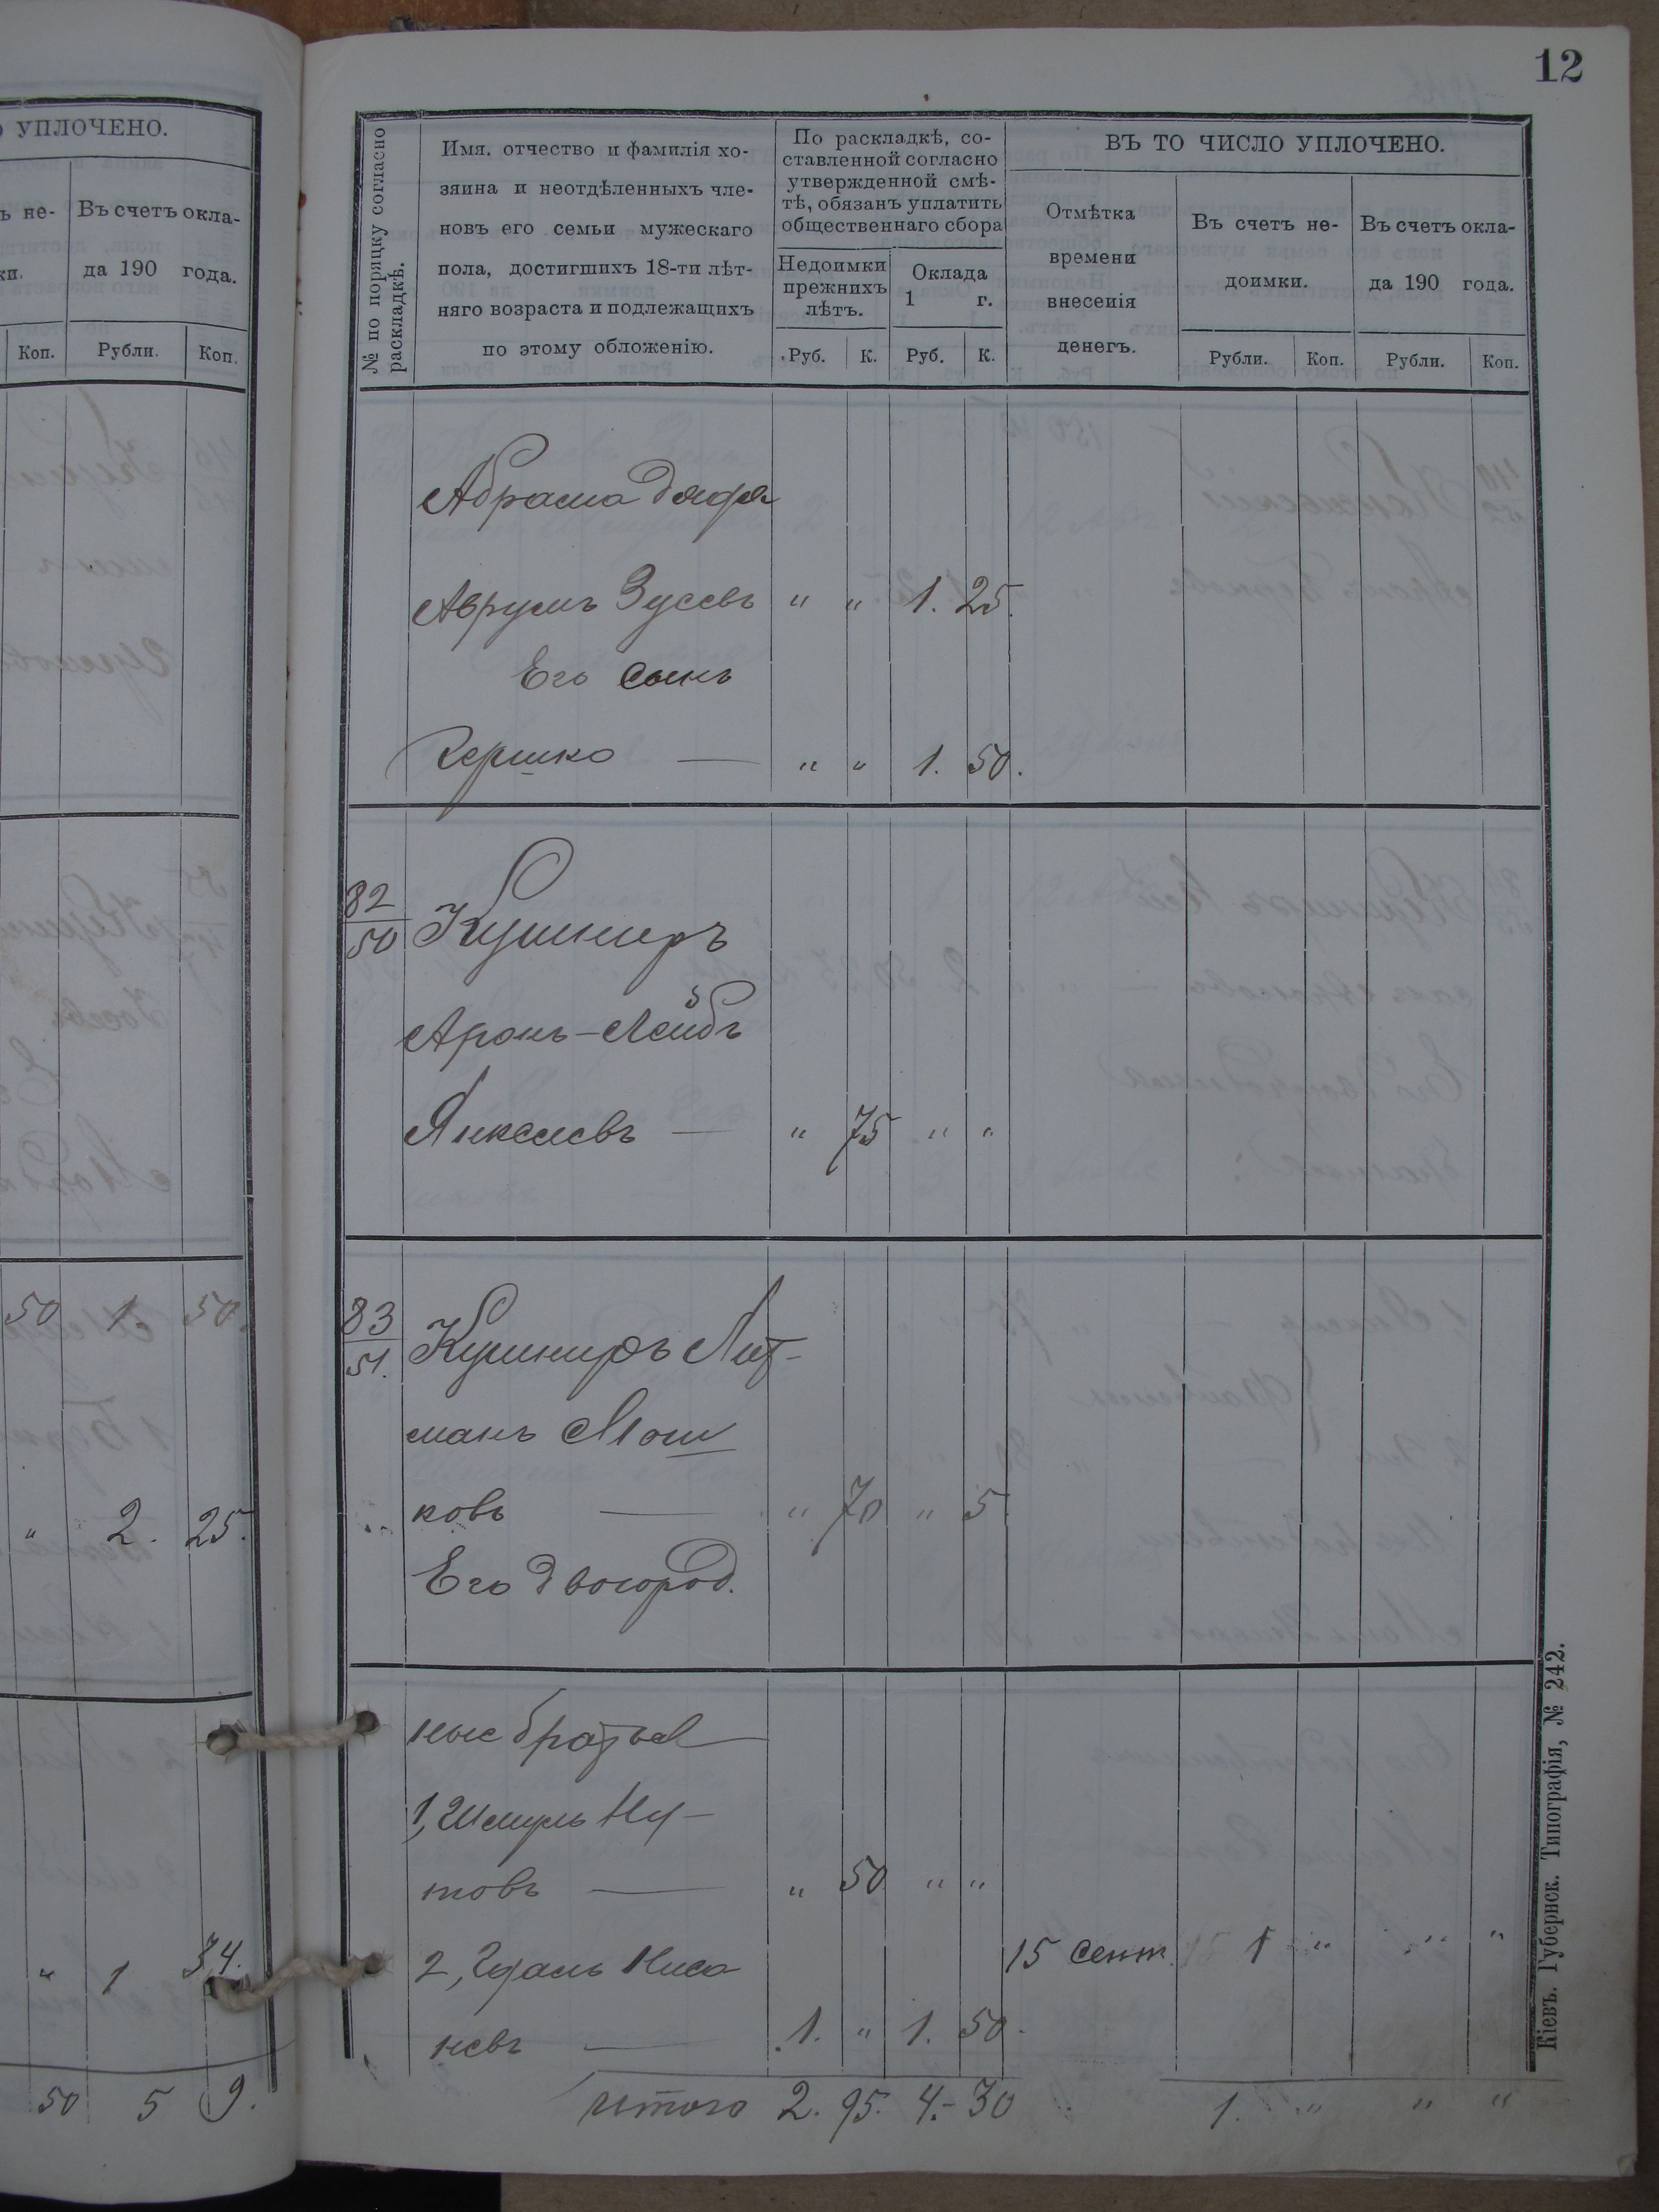 УПЛОЧЕНО.
ъ не-
Въ счетъ окла-
ки.
да 190 года.
Коп. Рубли. Коп.
50 1. 50.
" 2. 25.
" 1 34.
50 5 9.
12
№ по порядку согласно
раскладкѣ.
Имя, отчество и фамилія хо-
зяина и неотдѣленныхъ чле-
новъ его семьи мужескаго
пола, достигшихъ 18-ти лѣт-
няго возраста и подлежащихъ
по этому обложенію.
По раскладкѣ, со-
ставленной согласно
утвержденной смѣ-
тѣ, обязанъ уплатить
общественнаго сбора
Недоимки
прежнихъ
лѣтъ.
Оклада
1 г.
Руб. К. Руб. К.
ВЪ ТО ЧИСЛО УПЛОЧЕНО.
Отмѣтка
времени
внесенія
денегъ.
Въ счетъ не-
доимки.
Въ счетъ окла-
да 190 года.
Рубли. Коп. Рубли. Коп.
Абрама дядя
Аврумъ Зусевъ " " 1. 25.
Его сынъ
Гершко — " " 1. 50.
82
50
Кушниръ
Аронъ-Лейбъ
Янкелевъ — " 75 " "
83
51.
Кушниръ Лит-
манъ Мош
ковъ — " 70 " 5
Его двоюрод.
ные братья
1, Шмуль Ну-
товъ — " 50 " "
2, Гдаль Ниса
15 сент. 1 " " "
невъ — 1. " 1. 50.
Итого 2. 95. 4.- 30 1. " " "
Кіевъ. Губернск. Типографія, № 242.